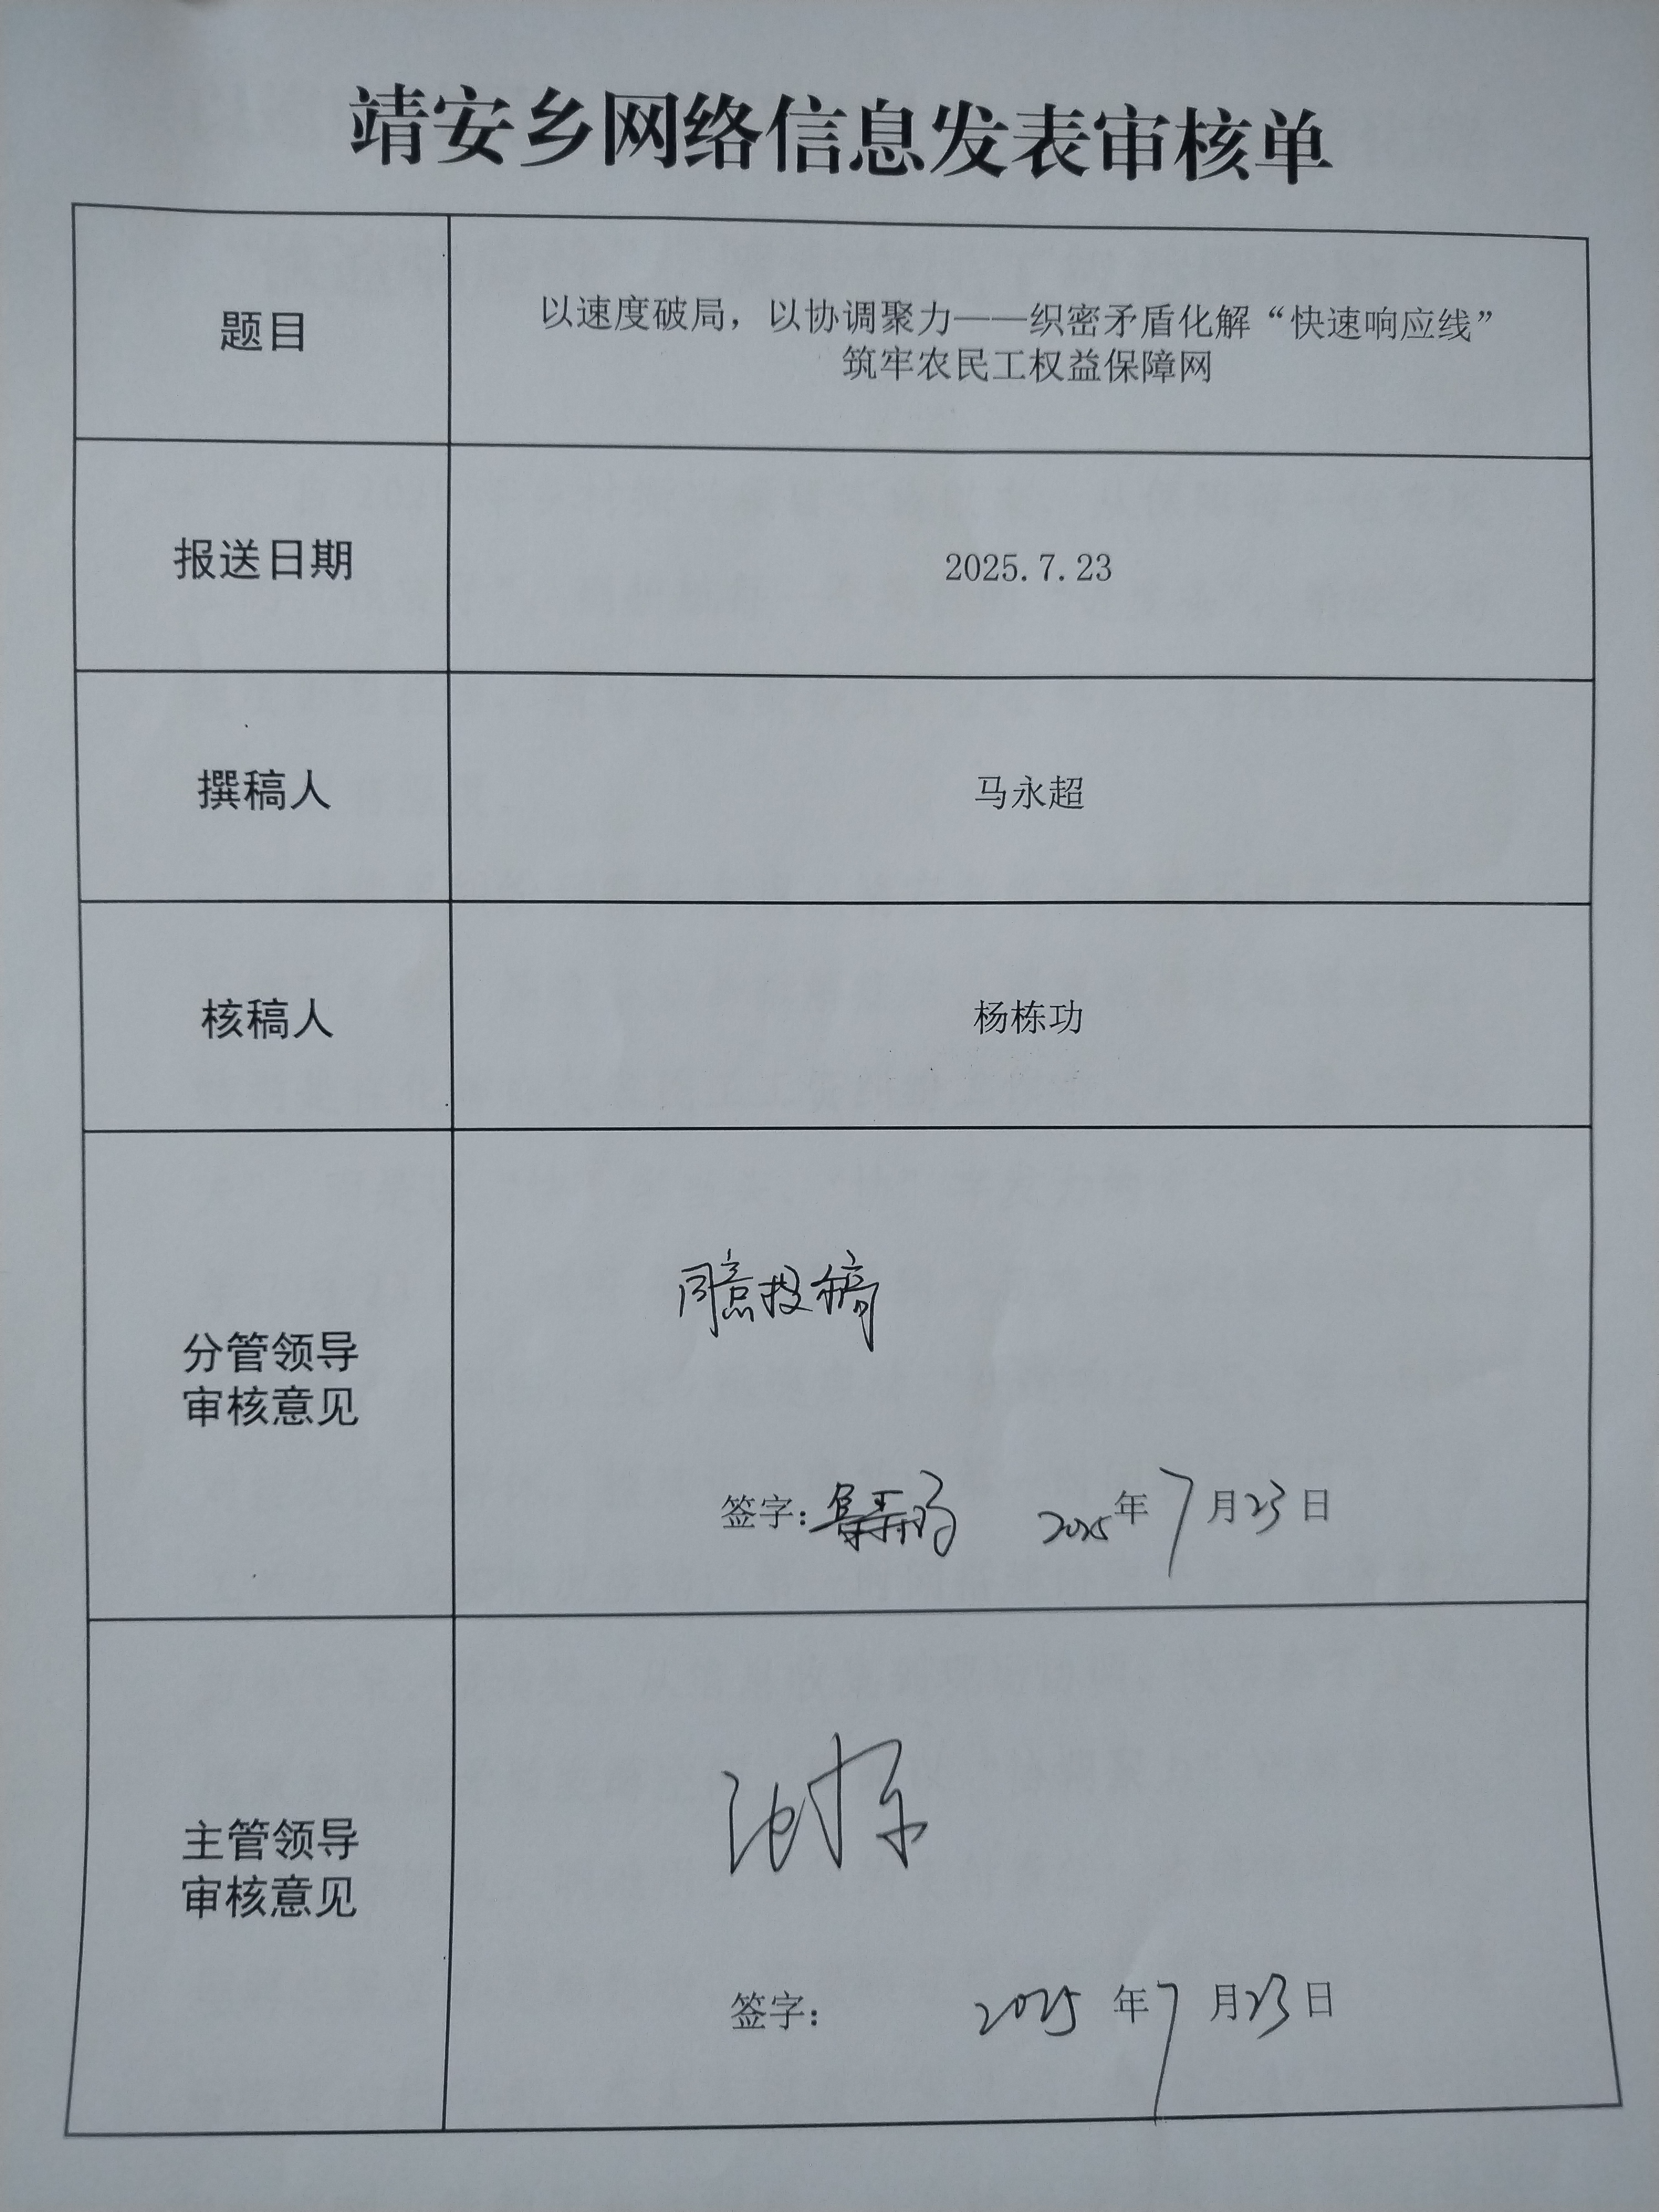 靖安乡网络信息发表审核单
题目
以速度破局，以协调聚力——织密矛盾化解“快速响应线”
筑牢农民工权益保障网
报送日期
2025.7.23
撰稿人
马永超
核稿人
杨栋功
分管领导
审核意见
同意投稿
签字：
2025年7月23日
主管领导
审核意见
签字：
2025年7月23日